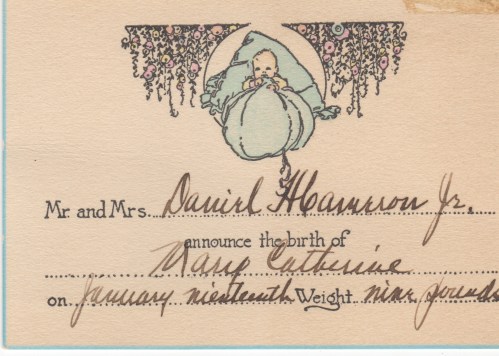 Mr. and Mrs. Daniel H Cameron Jr.
announce the birth of
Mary Catherine
on January nineteenth Weight nine pounds